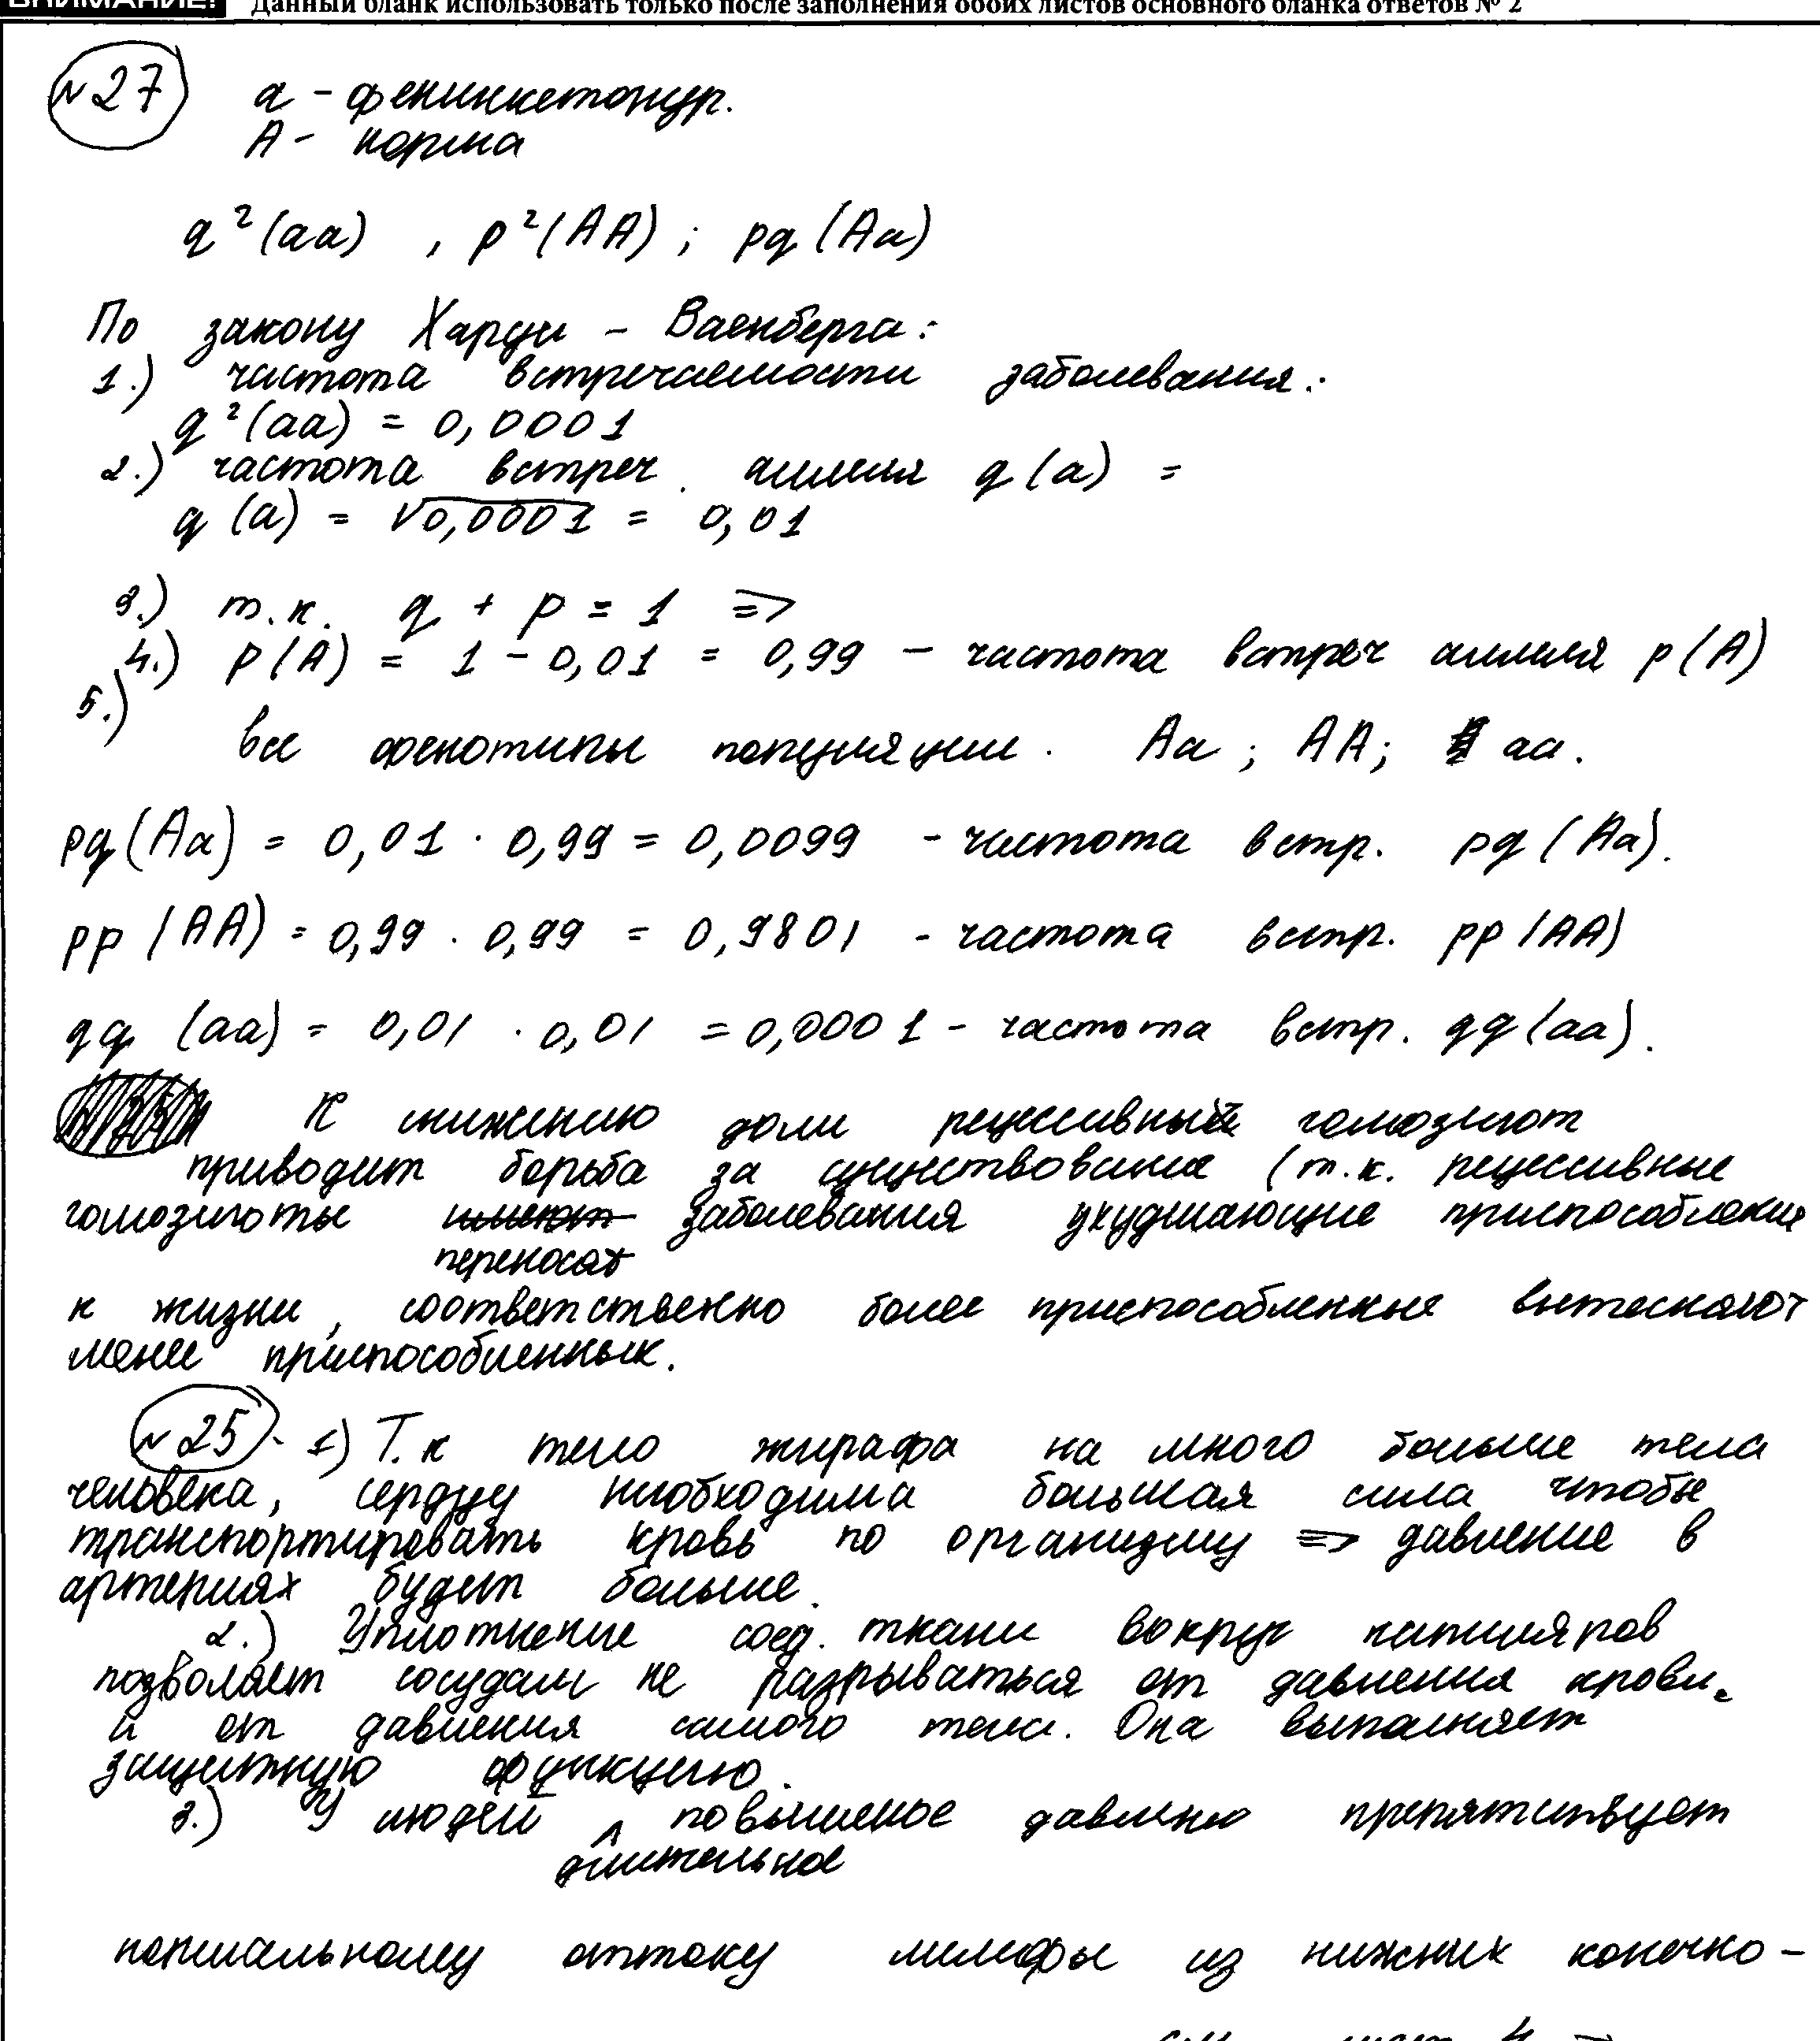 ВНИМАНИЕ! Данный бланк использовать только после заполнения обоих листов основного бланка ответов № 2
№27 a - фенилкетонур.
A - норма
q²(aa) , p²(AA) ; pq (Aa)
По закону Харди - Ваенберга:
1.) частота встречаемости заболевания:
q²(aa) = 0,0001
2.) частота встреч. аллеля q(a) =
q (a) = √0,0001 = 0,01
3.) т.к. q + p = 1 =>
4.) p(A) = 1 - 0,01 = 0,99 - частота встреч аллеля p(A)
5.)
все фенотипы популяции. Aa ; AA; aa.
pq(Aa) = 0,01 · 0,99 = 0,0099 - частота встр. pq (Aa).
pp (AA) = 0,99 · 0,99 = 0,9801 - частота встр. pp (AA)
qq (aa) = 0,01 · 0,01 = 0,0001 - частота встр. qq(aa).
К снижению доли рецессивных гомозигот
приводит борьба за существование (т.к. рецессивные
гомозиготы имеют заболевания ухудшающие приспособление
переносят
к жизни, соответственно более приспособленные вытесняют
менее приспособленных.
№25. 1) Т.к тело жирафа на много больше тела
человека, сердцу необходима большая сила чтобы
транспортировать кровь по организму => давление в
артериях будет больше.
2.) Уплотнение соед. ткани вокруг капиляров
позволяет сосудам не разрываться от давления крови.
и от давления самого тела. Она выполняет
защитную функцию.
3.) У людей повышеное давление препятствует
длительное
нормальному оттоку лимфы из нижних конечно-